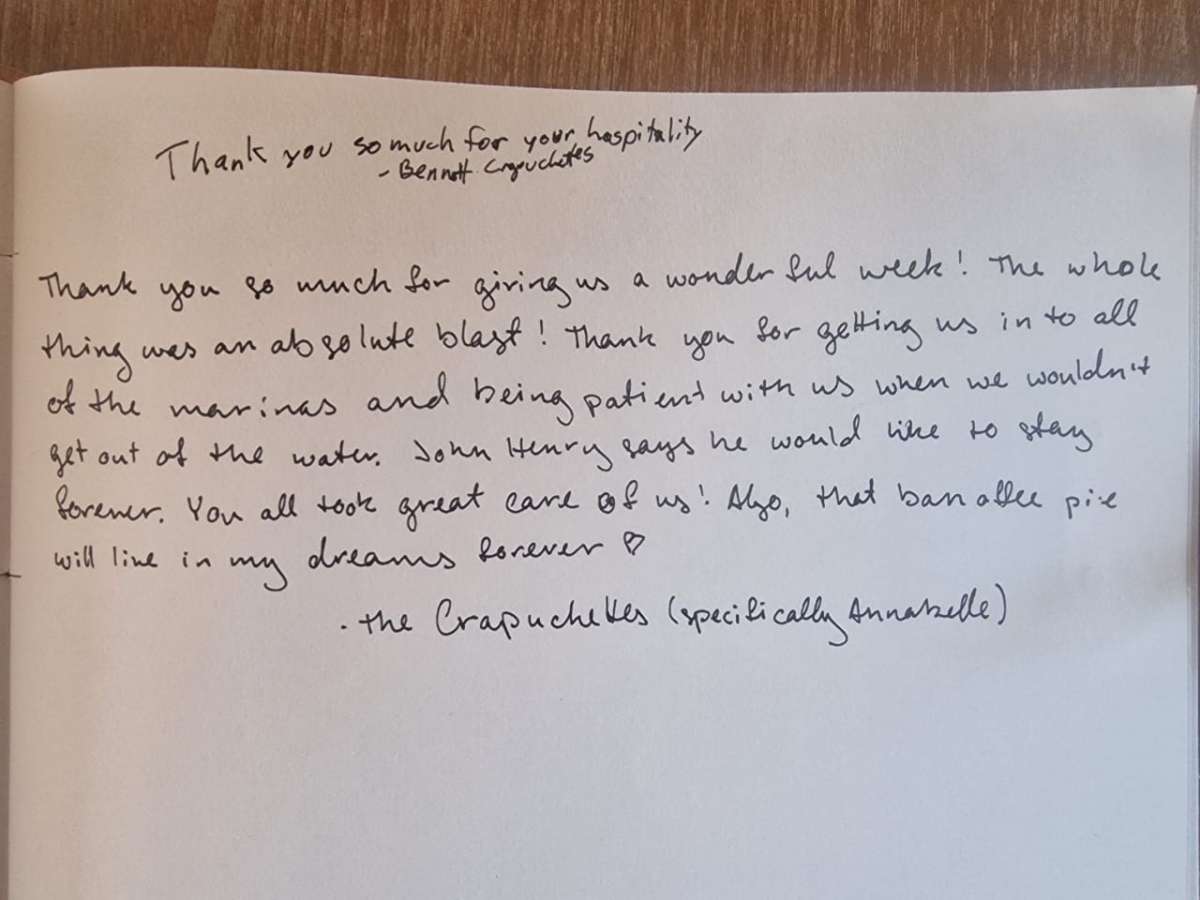 Thank you so much for your hospitality
- Bennett Crapuchettes
Thank you so much for giving us a wonderful week! The whole
thing was an absolute blast! Thank you for getting us in to all
of the marinas and being patient with us when we wouldn't
get out of the water. John Henry says he would like to stay
forever. You all took great care of us! Also, that banoffee pie
will live in my dreams forever ♡
- the Crapuchettes (specifically Annabelle)